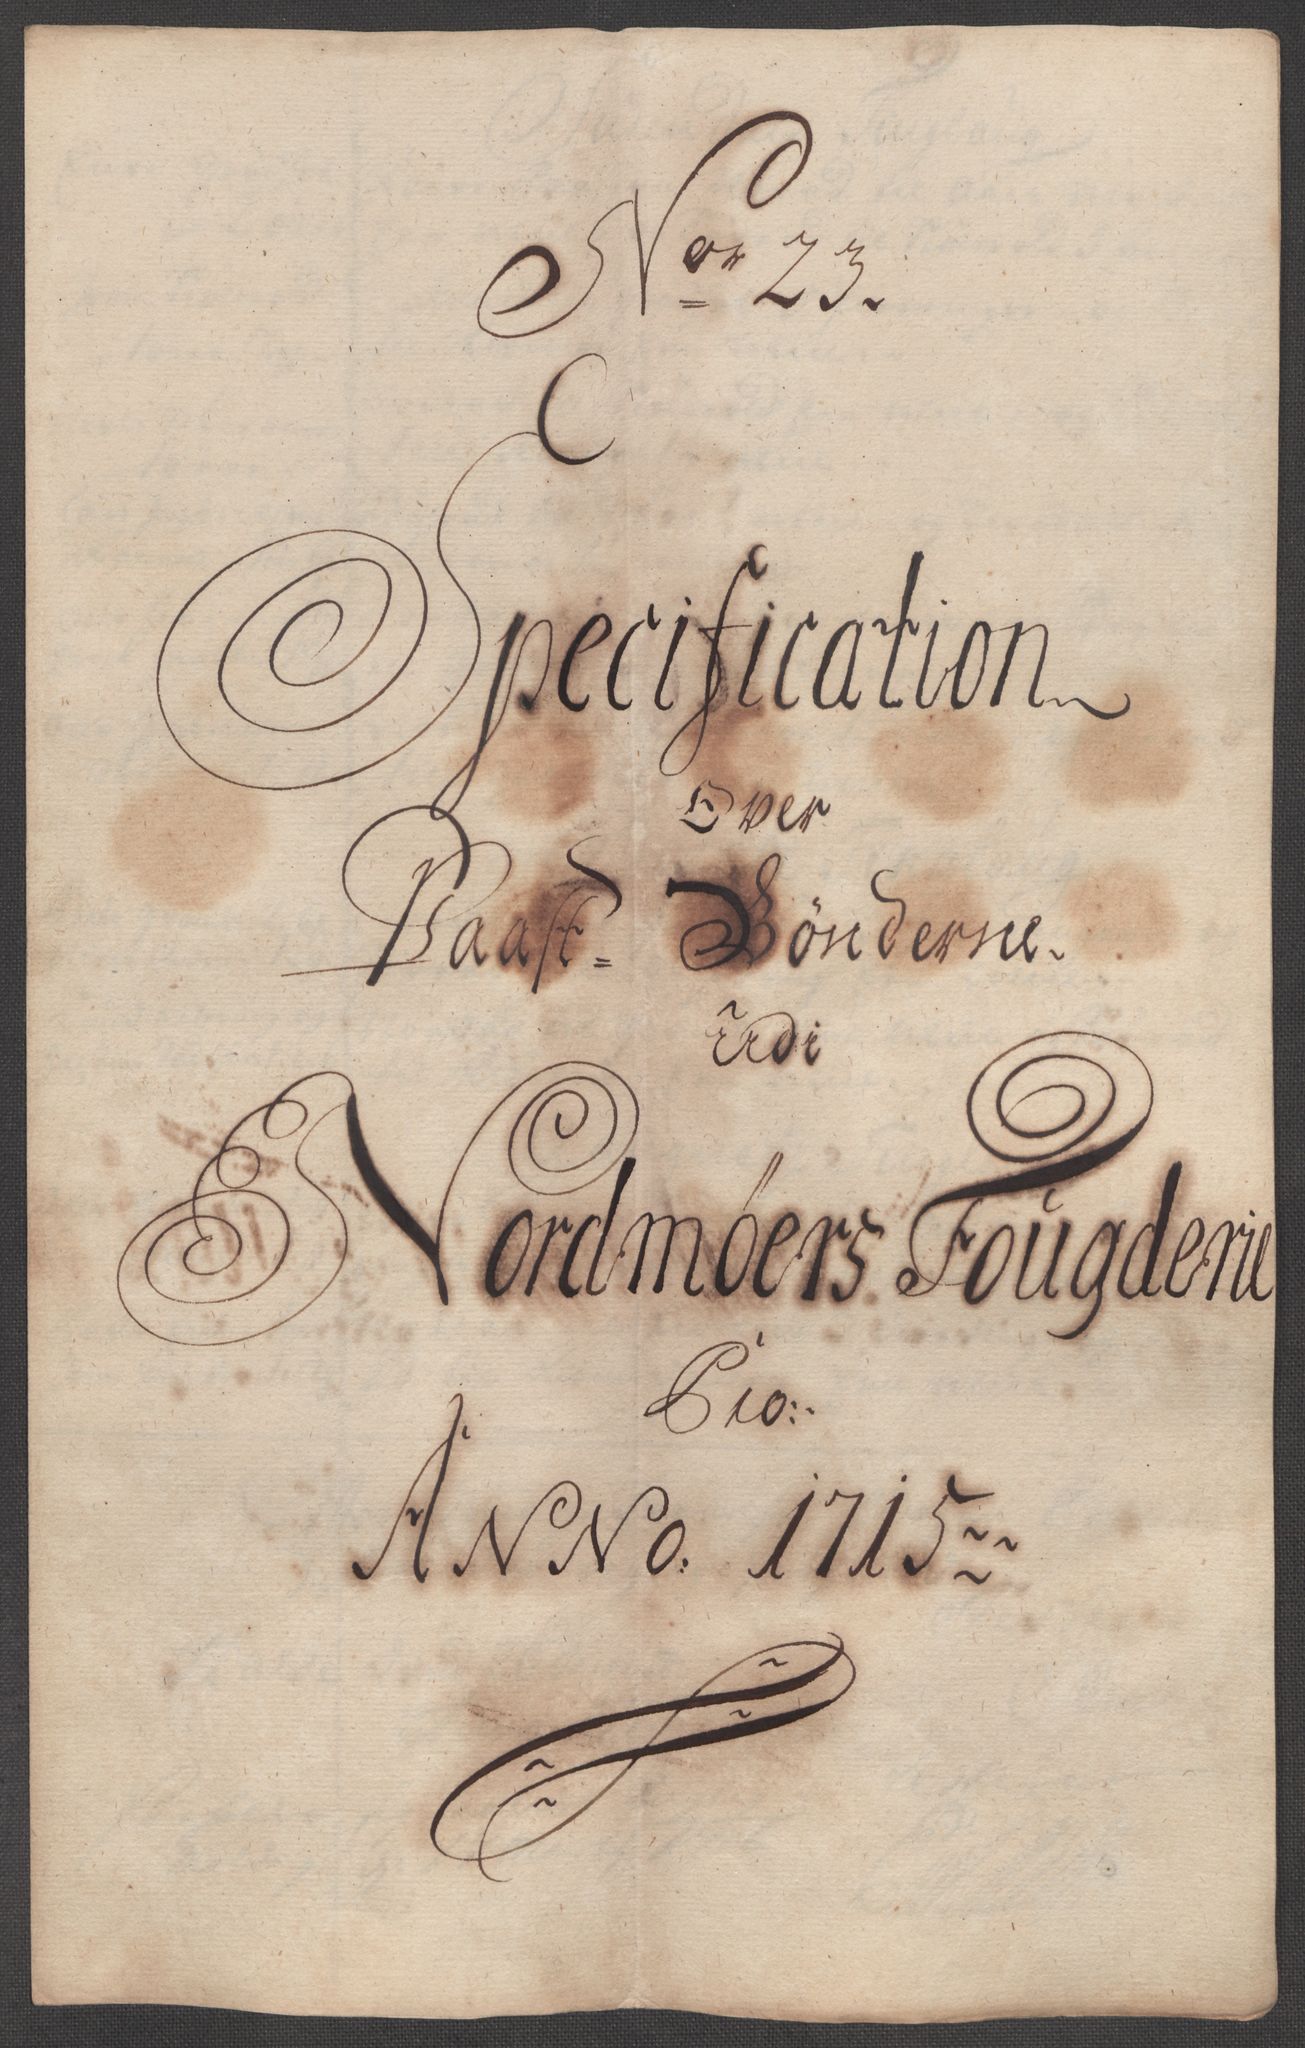 Nor 23.
Specification
Over
Paast= Bönderne.
Udi
Nordmöers Fougderie
Pro:
Anno. 1715